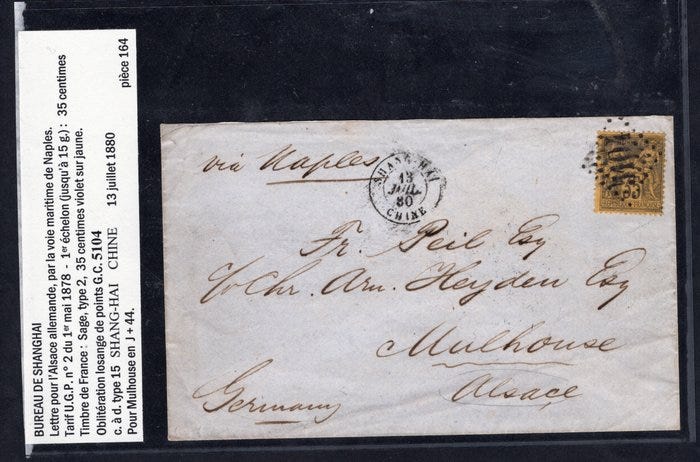 BUREAU DE SHANGHAI
Lettre pour l'Alsace allemande, par la voie maritime de Naples.
Tarif U.G.P. n° 2 du 1er mai 1878 - 1er échelon (jusqu'à 15 g.) : 35 centimes
Timbre de France : Sage, type 2, 35 centimes violet sur jaune.
Oblitération losange de points G.C. 5104
c. à d. type 15 SHANG-HAI CHINE 13 juillet 1880
Pour Mulhouse en J + 44. pièce 164
via Naples
SHANG-HAI
13
JUIL
80
CHINE
5104
35
Fr. Peil Esq
c/o Chr. Arn. Heyden Esq
Mulhouse
Alsace
Germany